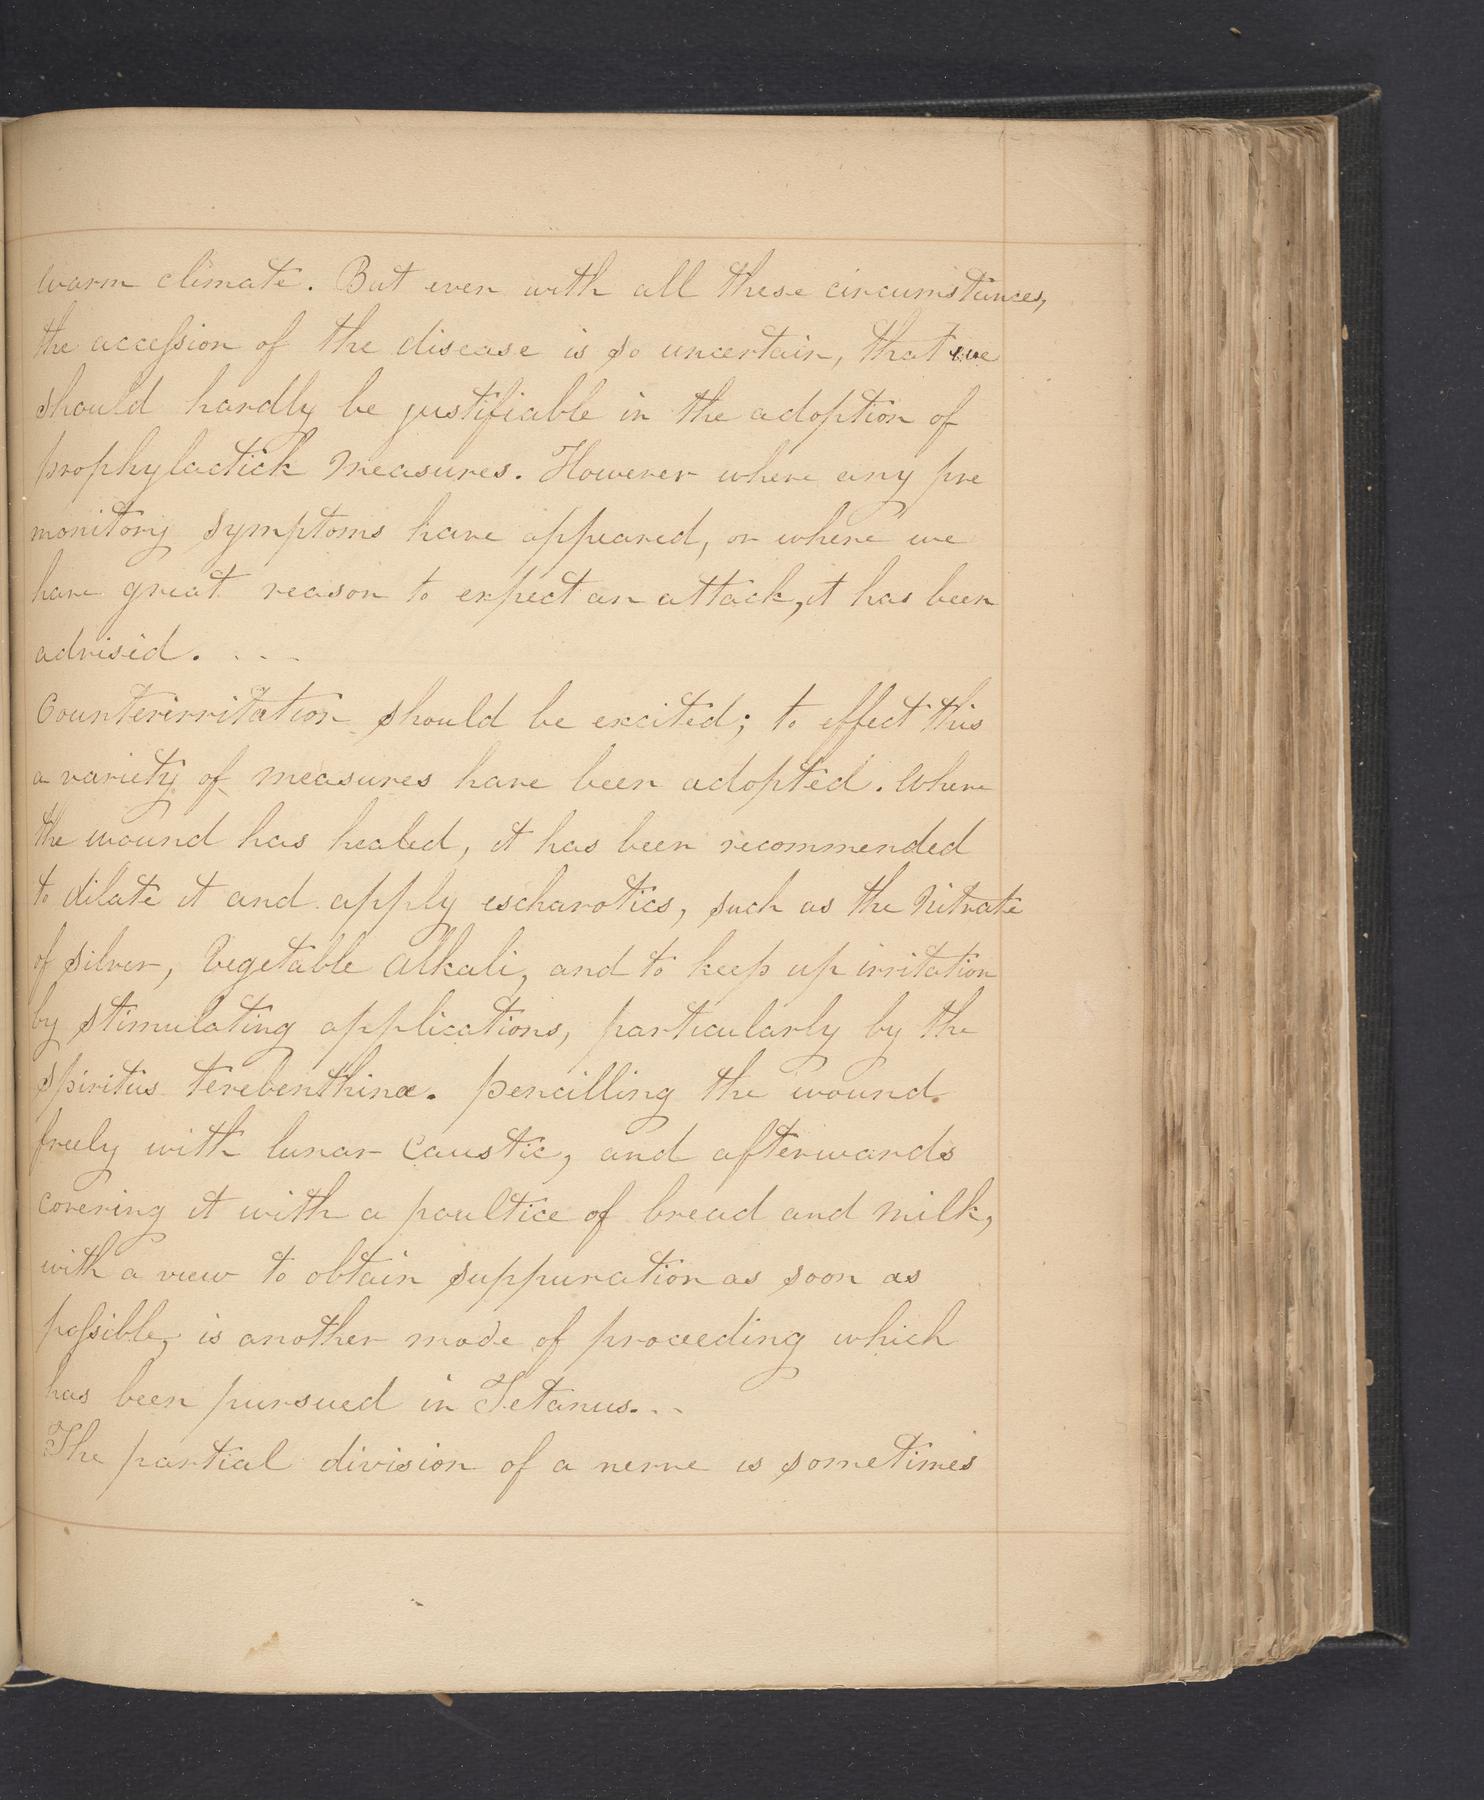 warm climate. But even with all these circumstances,
the accession of the disease is so uncertain, that we
should hardly be justifiable in the adoption of
prophylactick measures. However where any pre
monitory symptoms have appeared, or where we
have great reason to expect an attack, it has been
advised. - - -
Counterirritation should be excited; to effect this
a variety of measures have been adopted. Where
the wound has healed, it has been recommended
to dilate it and apply escharotics, such as the Nitrate
of silver, Vegetable Alkali, and to keep up irritation
by stimulating applications, particularly by the
spiritus terebenthinæ. pencilling the wound
freely with lunar Caustic, and afterwards
covering it with a poultice of bread and milk,
with a view to obtain suppuration as soon as
possible, is another mode of proceeding which
has been pursued in Tetanus. - -
The partial division of a nerve is sometimes